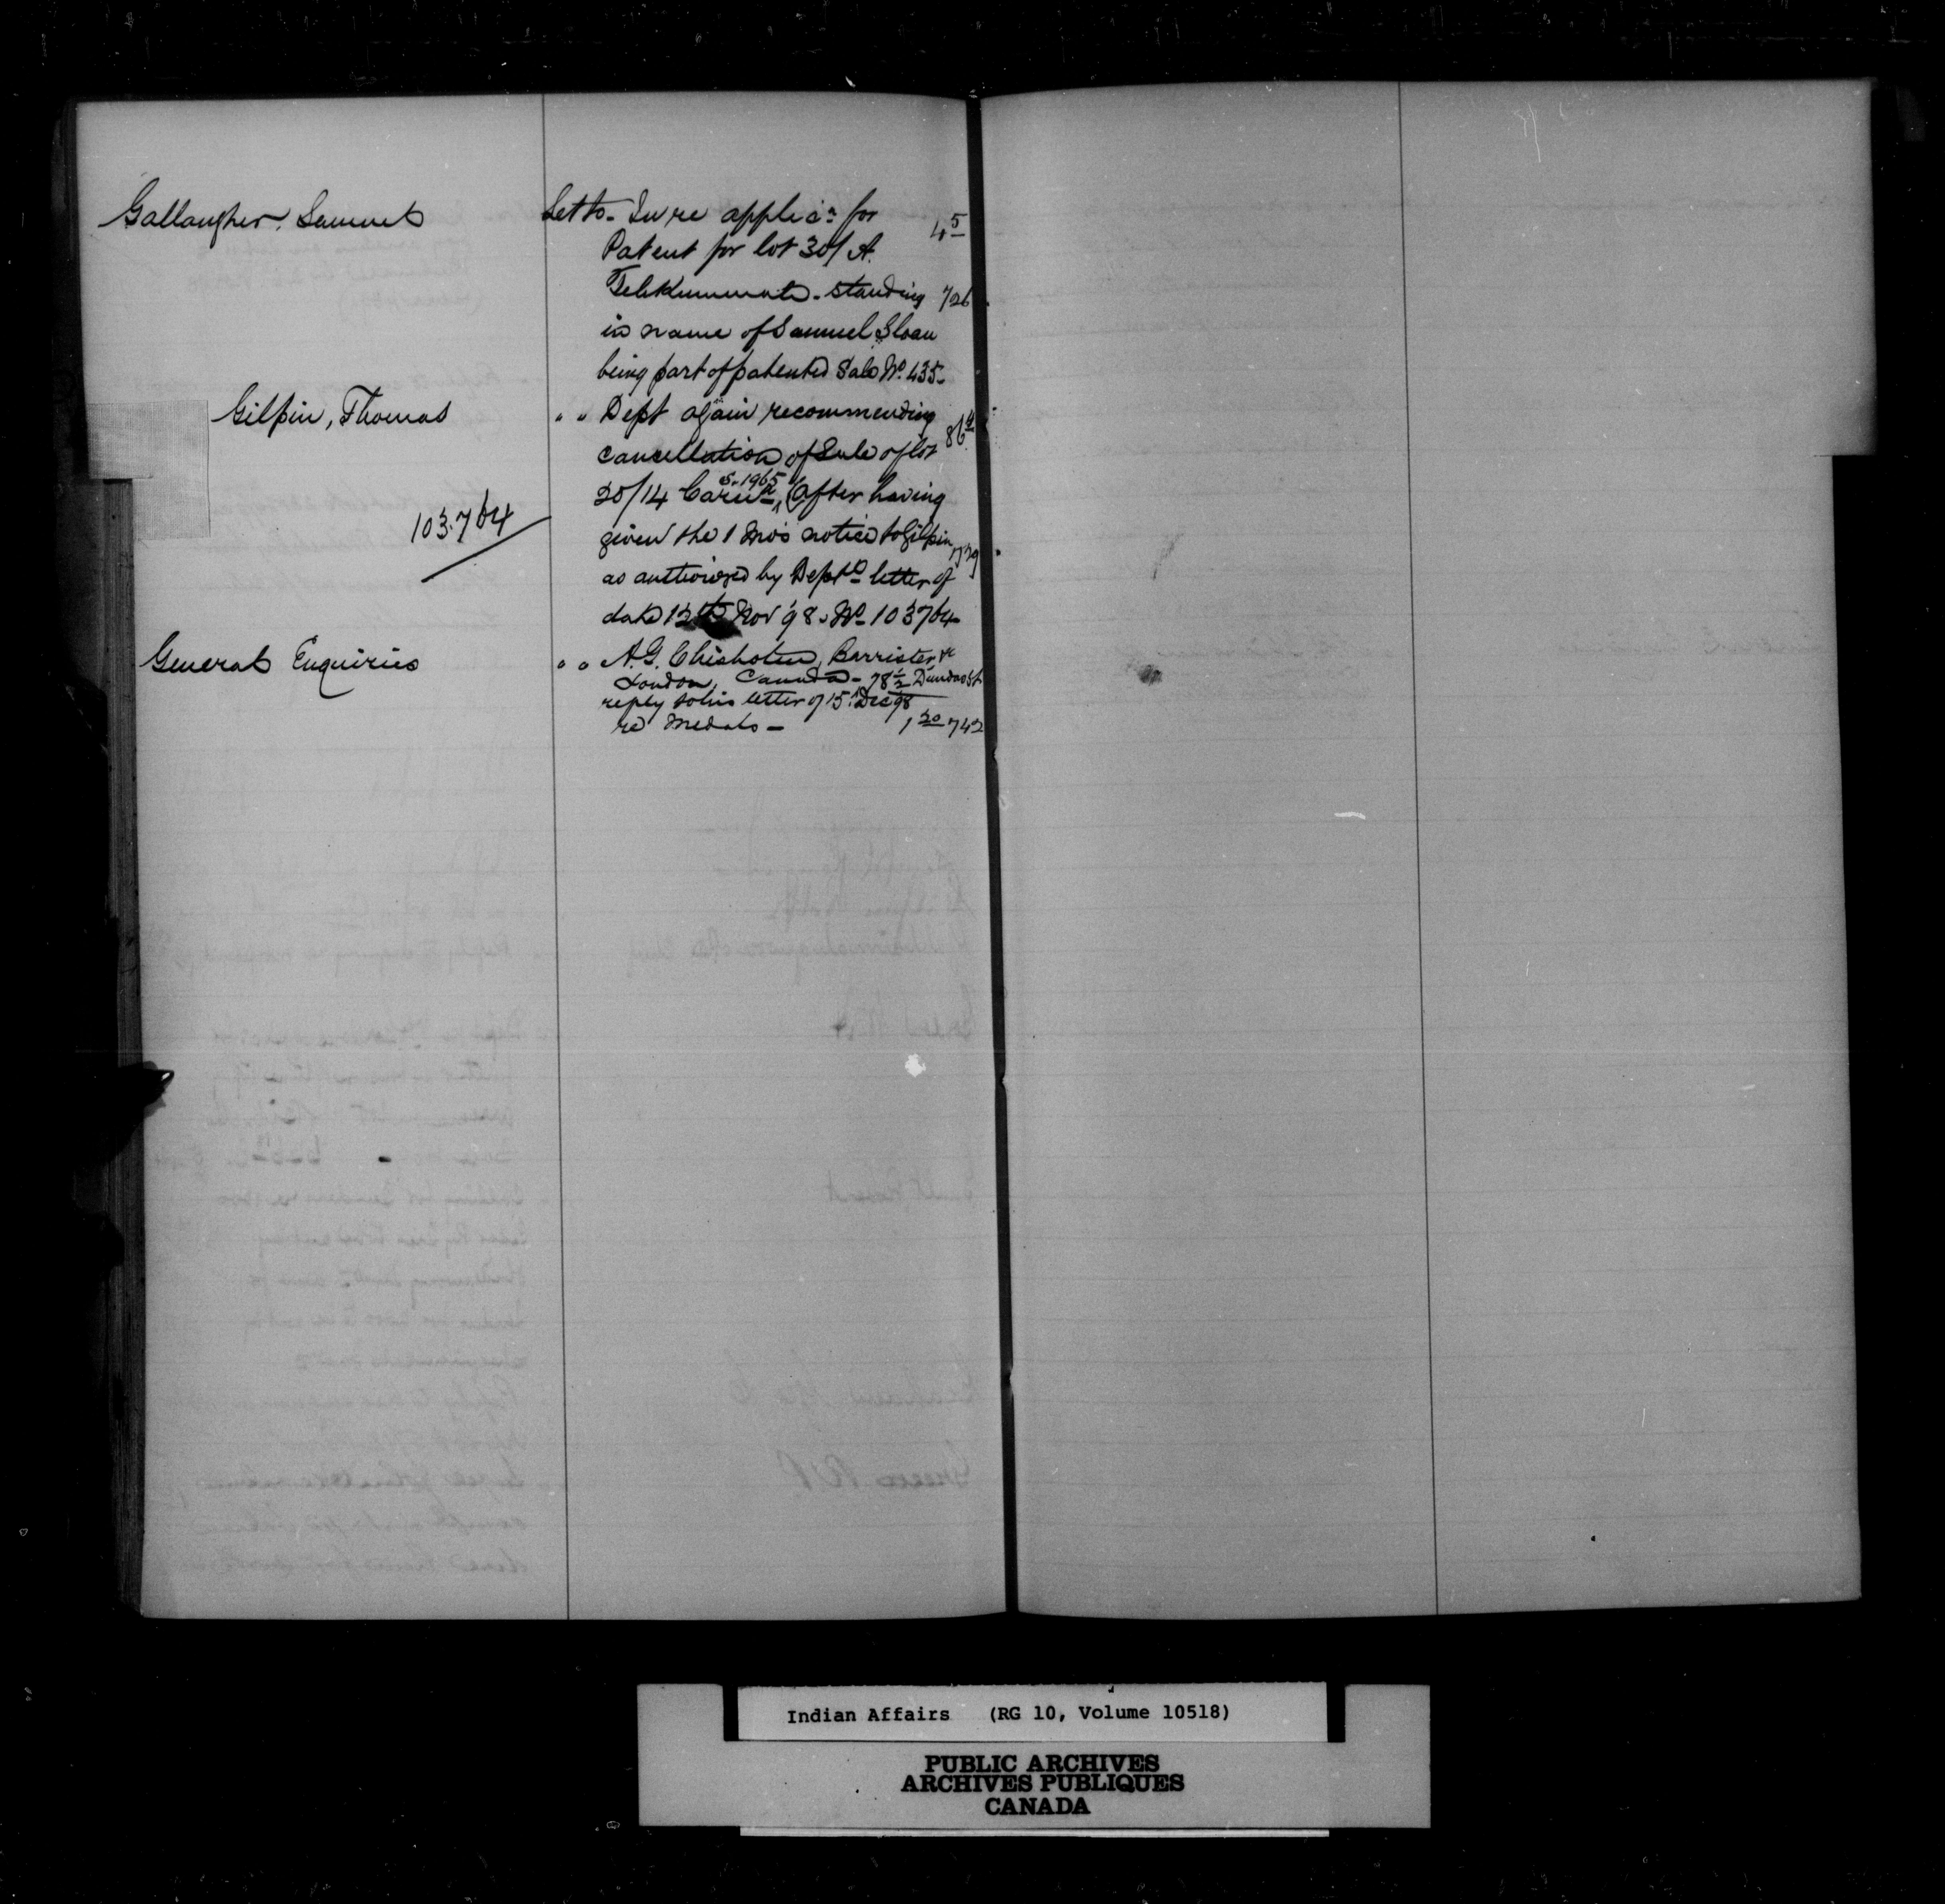 Gallaugher, Samuel
Letts. In re applicn for 45
Patent for lot 30/A.
Tehkummah. standing 726
in name of Samuel Sloan
being part of patented Sale No. 435.
Gilpin, Thomas
" " Dept again recommending
cancellation of Sale of lot 864
S. 1965
20/14 Carnn, (After having
103.764
given the 1 Mo's notice to Gilpin 739
as authorized by Dept's letter of
date 12th Nov '98. No 103764
General Enquiries
" " A.G. Chisholm, Barrister &c
London, Canada - 78½ Dundas St
reply to his letter of 15. Dec 98
re Medals - 1 20 742
Indian Affairs (RG 10, Volume 10518)
PUBLIC ARCHIVES
ARCHIVES PUBLIQUES
CANADA